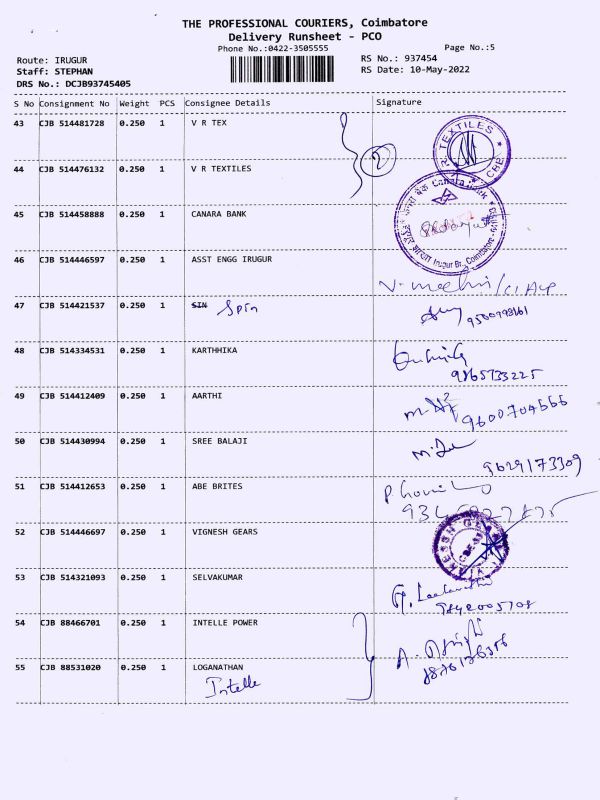 THE PROFESSIONAL COURIERS, Coimbatore
Delivery Runsheet - PCO
Phone No.:0422-3505555
Page No.:5
Route: IRUGUR
RS No.: 937454
Staff: STEPHAN
RS Date: 10-May-2022
DRS No.: DCJB93745405
S No Consignment No Weight PCS Consignee Details Signature
43 CJB 514481728 0.250 1 V R TEX
2
R. TEXTILES ★ CBE
44 CJB 514476132 0.250 1 V R TEXTILES
45 CJB 514458888 0.250 1 CANARA BANK
Canara Bank
Irugur Br., Coimbatore
46 CJB 514446597 0.250 1 ASST ENGG IRUGUR
47 CJB 514421537 0.250 1 SIN Spin
48 CJB 514334531 0.250 1 KARTHHIKA
9865733225
49 CJB 514412409 0.250 1 AARTHI
9600704666
50 CJB 514430994 0.250 1 SREE BALAJI
9629173309
51 CJB 514412653 0.250 1 ABE BRITES
52 CJB 514446697 0.250 1 VIGNESH GEARS
53 CJB 514321093 0.250 1 SELVAKUMAR
9842005708
54 CJB 88466701 0.250 1 INTELLE POWER
55 CJB 88531020 0.250 1 LOGANATHAN
Intelle